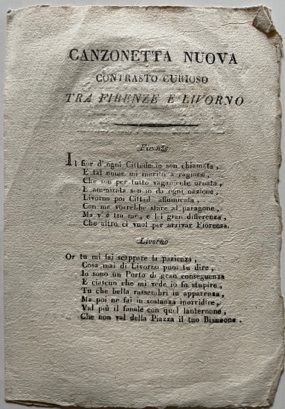 CANZONETTA NUOVA
CONTRASTO CURIOSO
TRA FIRENZE E LIVORNO
Firenze
Il fior d'ogni Cittade io son chiamata,
E tal nome mi merito a ragione,
Che son per tutto vagamente ornata,
E ammirata son io di ogni nazione,
Livorno poi Città affumicata,
Con me vorrebbe stare al paragone,
Ma v'è tra me, e lei gran differenza,
Che altro ci vuol per arrivar Fiorenza.
Livorno
Or tu mi fai scappare la pazienza,
Cosa mai di Livorno puoi tu dire,
Io sono un Porto di gran conseguenza
E ciascun che mi vede io fo stupire,
Tu che bella rassembri in apparenza,
Ma poi ne fai in sostanza inorridire,
Val più il fanale con quel lanternone,
Che non val della Piazza il tuo Biancone.